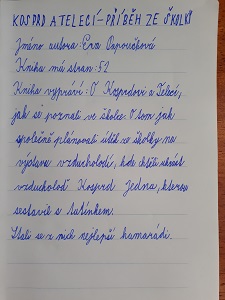 KOSPRD A TELECÍ – PŘÍBĚH ZE ŠKOLKY
Jméno autora: Eva Papoušková
Kniha má stran: 52
Kniha vypráví: O Kosprdovi a Telecí,
jak se poznali ve školce. O tom jak
společně plánovali útěk ze školky na
výstavu vzducholodí, kde chtěli ukrást
vzducholoď. Kosprd jednu, kterou
sestavil s tatínkem.
Stali se z nich nejlepší kamarádi.